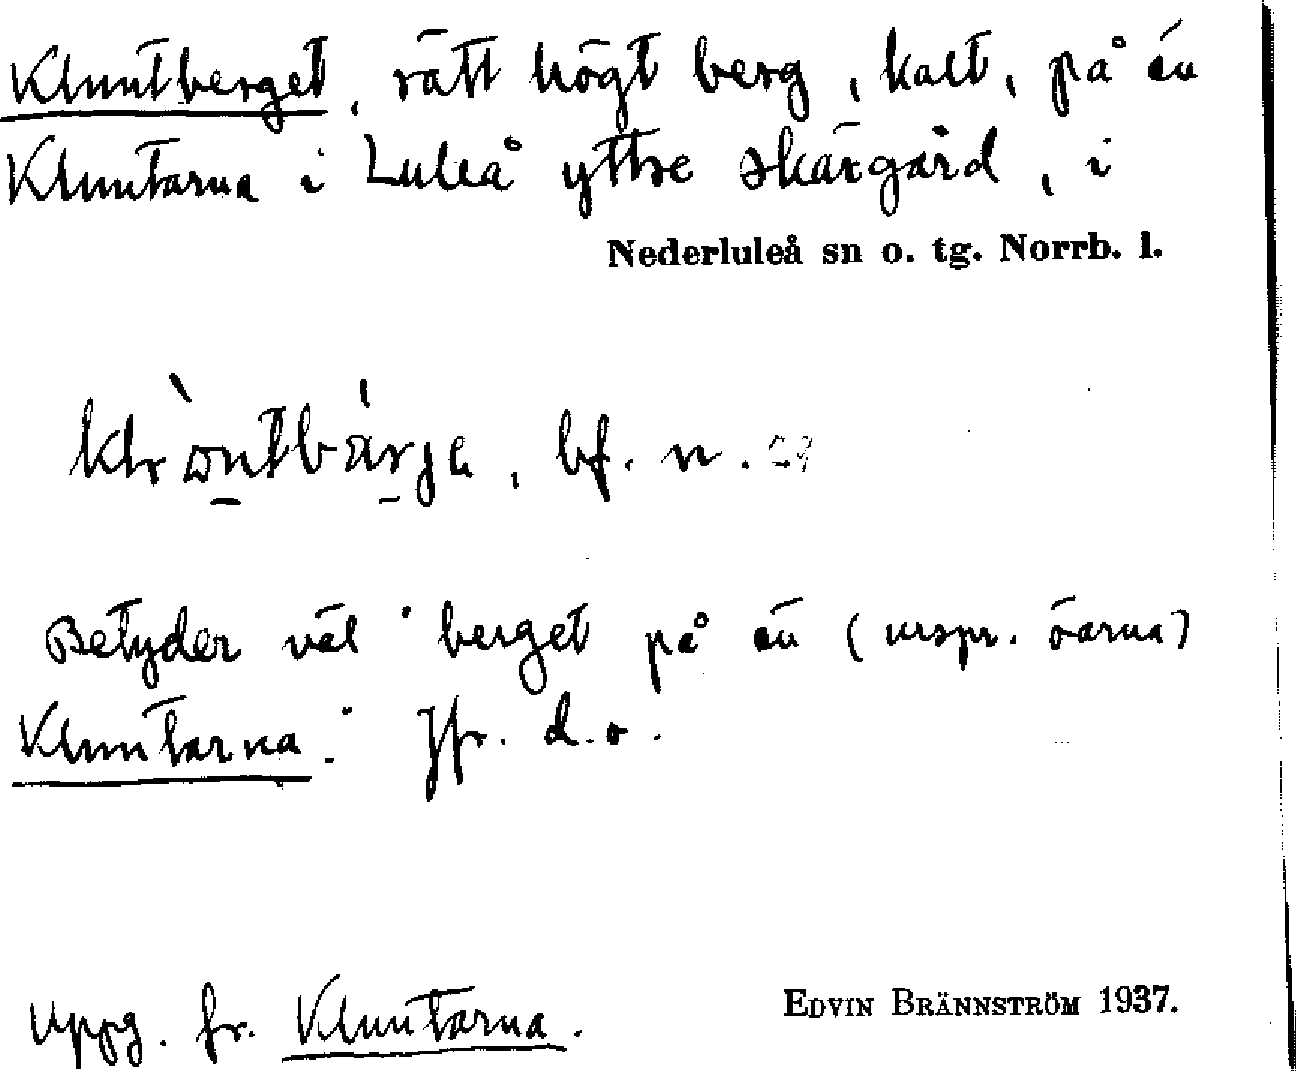 Kluntberget, rätt högt berg, kalt, på ön
Kluntarna i Luleå yttre skärgård, i
Nederluleå sn o. tg. Norrb. l.
bf. n.
Betyder väl "berget på ön (urspr. öarna)
Kluntarna". Jfr. d.o.
Uppg. fr. Kluntarna.
EDVIN BRÄNNSTRÖM 1937.